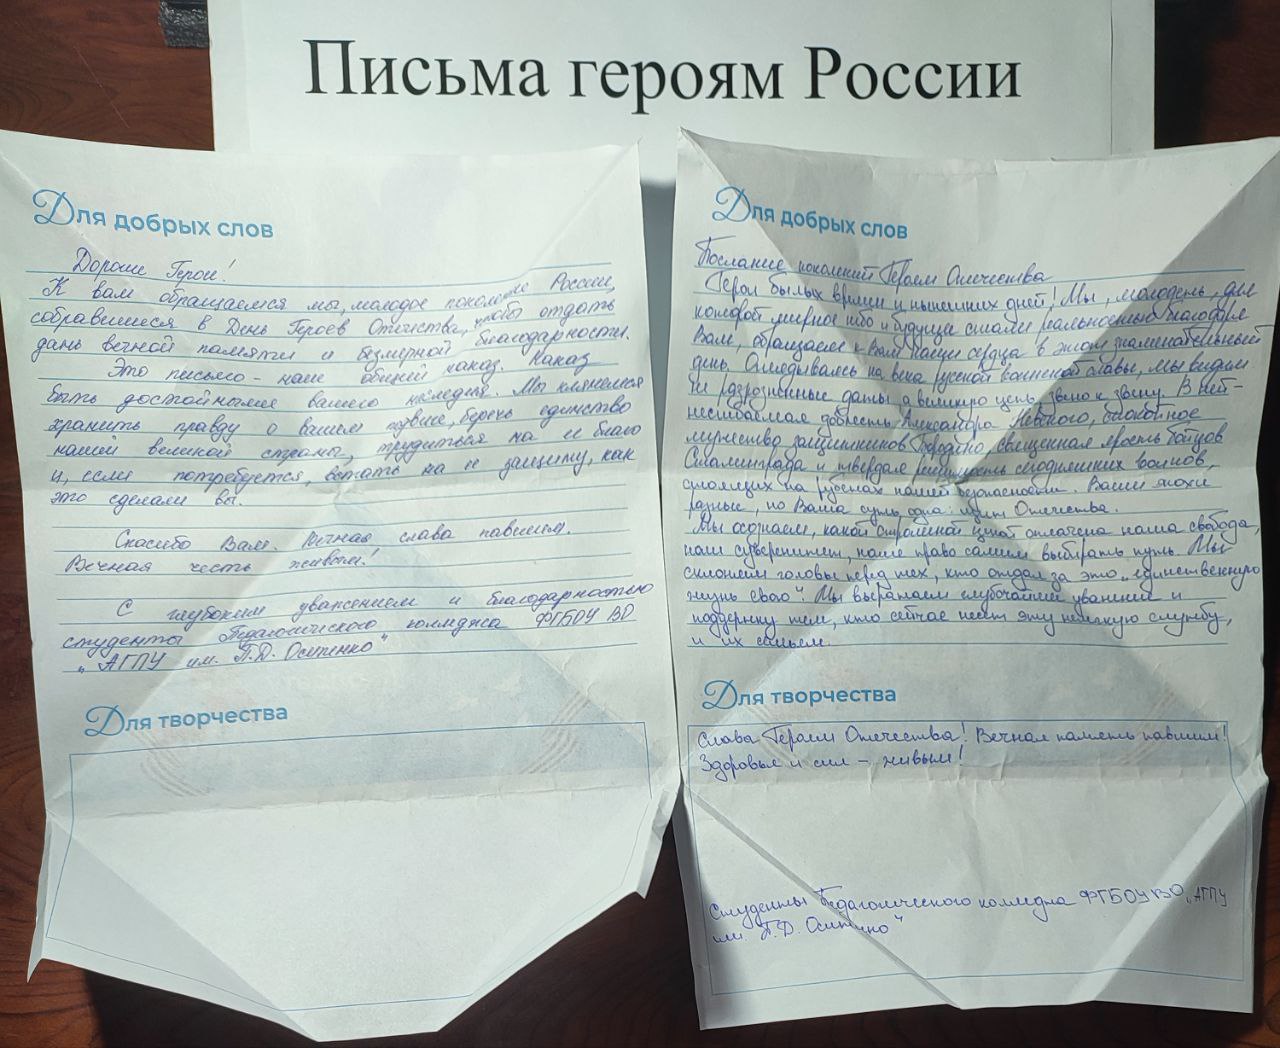 Письма героям России
Для добрых слов
Дорогие Герои!
К вам обращаемся мы, молодое поколение России,
собравшиеся в День Героев Отечества, чтобы отдать
дань вечной памяти и безмерной благодарности.
Это письмо - наш общий наказ. Наказ
быть достойными вашего наследия. Мы клянемся
хранить правду о вашем подвиге, беречь единство
нашей великой страны, трудиться на ее благо
и, если потребуется, встать на ее защиту, как
это сделали вы.
Спасибо Вам. Вечная слава павшим.
Вечная честь живым!
С глубоким уважением и благодарностью
студенты Педагогического колледжа ФГБОУ ВО
„АГПУ им. П.Д. Осипенко"
Для творчества
Для добрых слов
Послание поколений Героям Отечества
Герои былых времен и нынешних дней! Мы, молодежь, для
которой мирное небо и будущее стали реальностью благодаря
Вам, обращаем к Вам наши сердца в этот знаменательный
день. Оглядываясь на века русской воинской славы, мы видим
не разрозненные даты, а великую цепь, звено к звену. В ней -
несгибаемая доблесть Александра Невского, стойкое
мужество защитников Бородино, священная ярость бойцов
Сталинграда и твердая решимость сегодняшних воинов,
стоящих на рубежах нашей безопасности. Ваши эпохи
разные, но Ваша суть одна: щит Отечества.
Мы осознаем, какой огромной ценой оплачена наша свобода,
наш суверенитет, наше право самим выбирать путь. Мы
склоняем головы перед тех, кто отдал за это „единственную
жизнь свою". Мы выражаем глубочайшее уважение и
поддержку тем, кто сейчас несет эту нелегкую службу,
и их семьям.
Для творчества
Слава Героям Отечества! Вечная память павшим!
Здоровья и сил - живым!
Студенты Педагогического колледжа ФГБОУ ВО „АГПУ
им. П.Д. Осипенко"